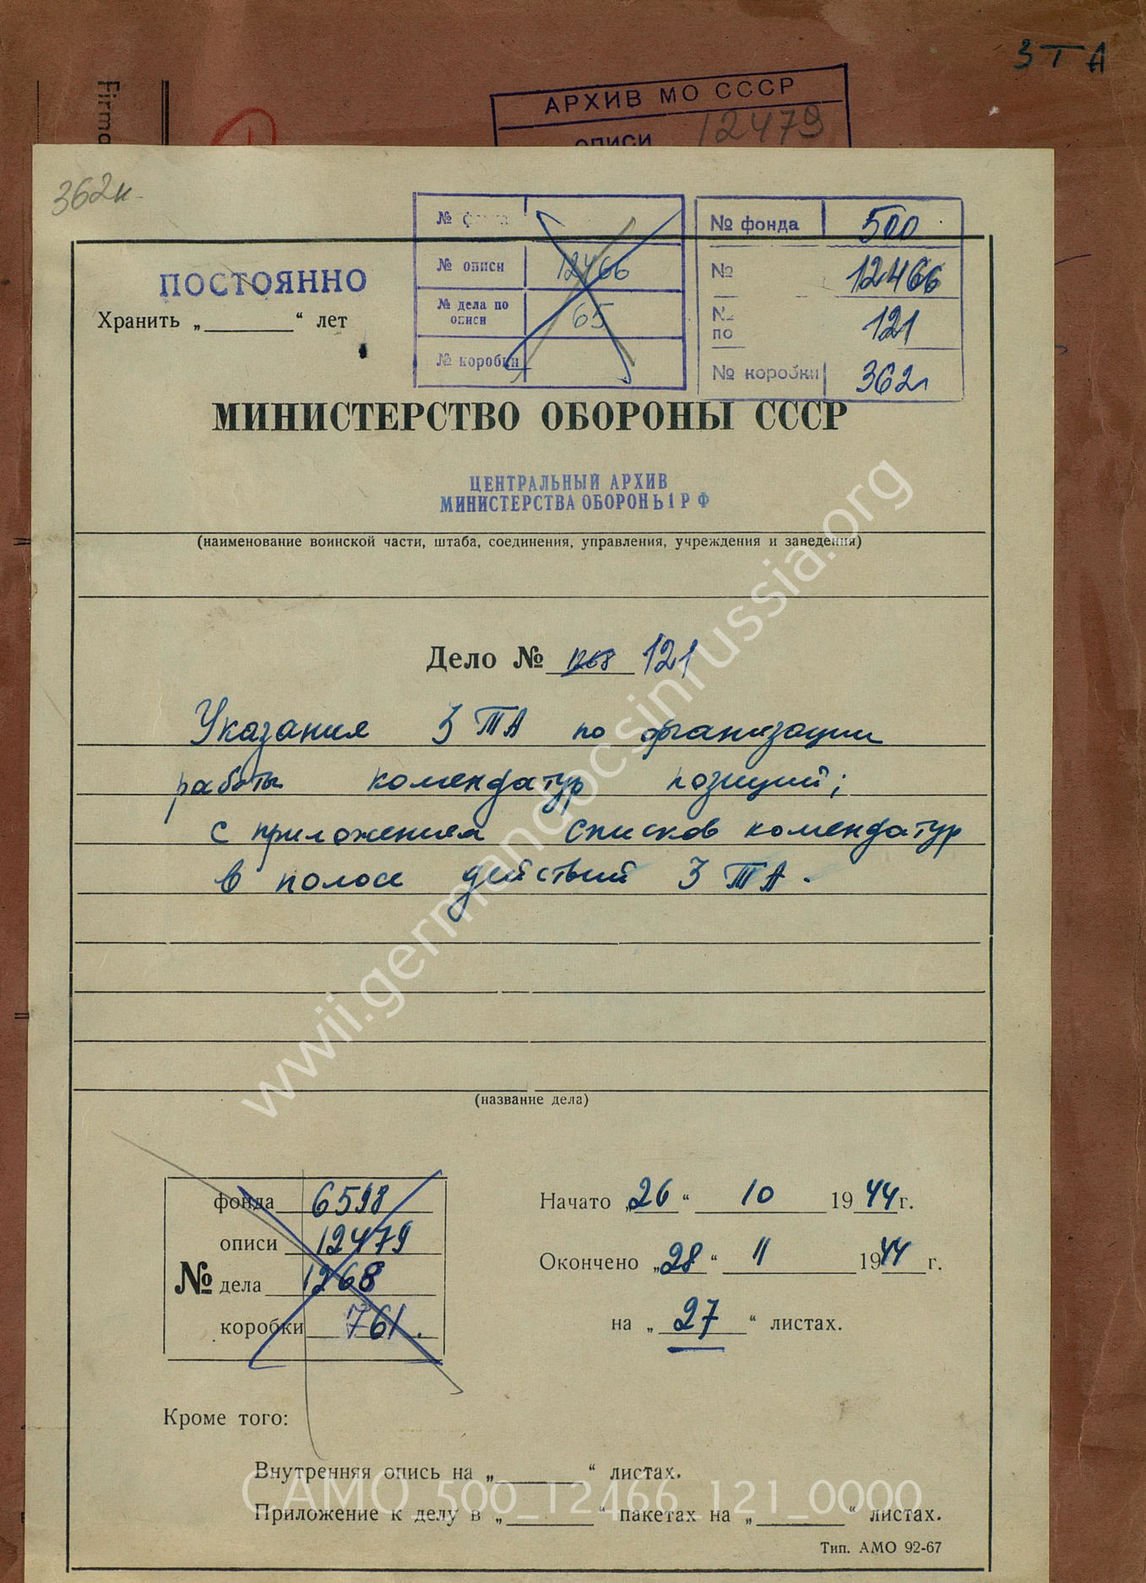 3 ТА
Firma
АРХИВ МО СССР
описи 12479
362н.
№ фонда
№ описи 12466
№ дела по описи 65
№ коробки
№ фонда 500
№ 12466
№ по 121
№ коробки 362
ПОСТОЯННО
Хранить „ “ лет
МИНИСТЕРСТВО ОБОРОНЫ СССР
ЦЕНТРАЛЬНЫЙ АРХИВ
МИНИСТЕРСТВА ОБОРОНЫ РФ
(наименование воинской части, штаба, соединения, управления, учреждения и заведения)
Дело № 1268 121
Указания 3 ТА по организации
работы комендатур позиций;
с приложением списков комендатур
в полосе действий 3 ТА.
(название дела)
№
фонда 6598
описи 12479
дела 1268
коробки 761.
Начато „26“ 10 1944 г.
Окончено „28“ 11 1944 г.
на „27“ листах.
Кроме того:
Внутренняя опись на „ “ листах.
Приложение к делу в „ “ пакетах на „ “ листах.
Тип. АМО 92-67
www.germandocsinrussia.org
CAMO_500_12466_121_0000